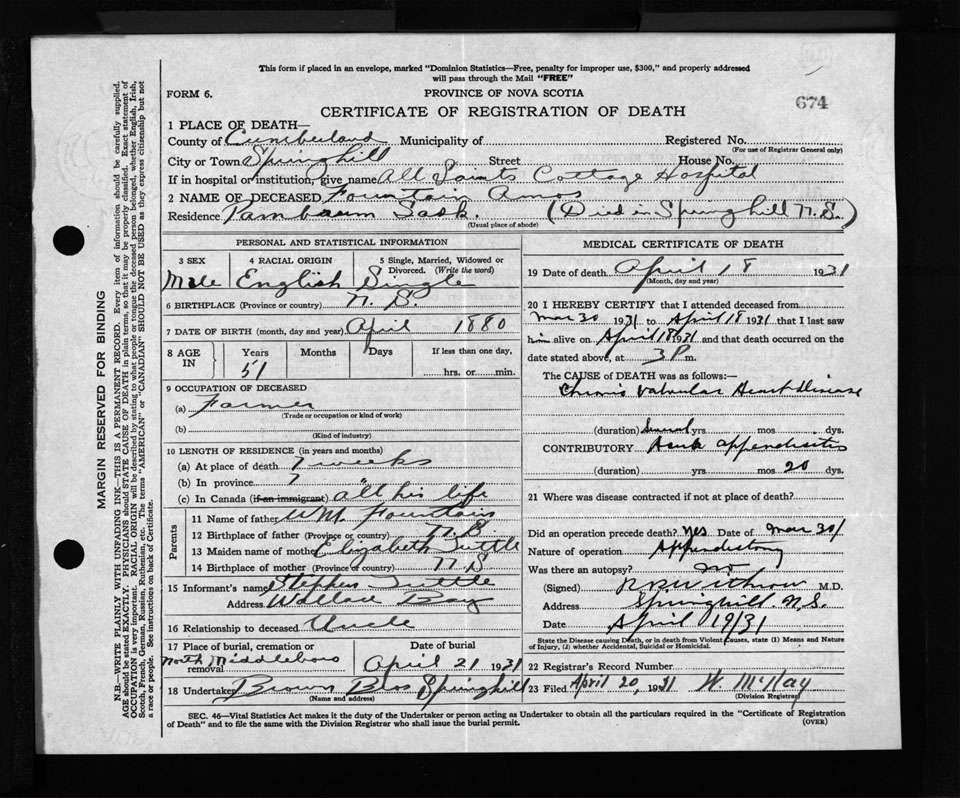 This form if placed in an envelope, marked "Dominion Statistics—Free, penalty for improper use, $300," and properly addressed
will pass through the Mail "FREE"
FORM 6.
PROVINCE OF NOVA SCOTIA
674
CERTIFICATE OF REGISTRATION OF DEATH
1 PLACE OF DEATH—
County of Cumberland Municipality of Registered No.
(For use of Registrar General only)
City or Town Springhill Street House No.
If in hospital or institution, give name All Saints Cottage Hospital
2 NAME OF DECEASED Fountain Amos
Residence Pambaum Sask. (Died in Springhill N.S.)
(Usual place of abode)
PERSONAL AND STATISTICAL INFORMATION
3 SEX 4 RACIAL ORIGIN 5 Single, Married, Widowed or
Divorced. (Write the word)
Male English Single
6 BIRTHPLACE (Province or country) N. S.
7 DATE OF BIRTH (month, day and year) April 1880
8 AGE IN Years Months Days If less than one day,
51 hrs. or min.
9 OCCUPATION OF DECEASED
(a) Farmer
(Trade or occupation or kind of work)
(b)
(Kind of industry)
10 LENGTH OF RESIDENCE (in years and months)
(a) At place of death 7 weeks
(b) In province 7 "
(c) In Canada (if an immigrant) all his life
Parents
11 Name of father Wm. Fountain
12 Birthplace of father (Province or country) N.B.
13 Maiden name of mother Elizabeth Tuttle
14 Birthplace of mother (Province or country) N.S
15 Informant's name Stephen Tuttle
Address Wallace Bay
16 Relationship to deceased Uncle
17 Place of burial, cremation or removal Date of burial
North Middleboro April 21 1931
18 Undertaker Brown Bros Springhill
(Name and address)
MEDICAL CERTIFICATE OF DEATH
19 Date of death April 18 1931
(Month, day and year)
20 I HEREBY CERTIFY that I attended deceased from
Mar 30 1931 to April 18 1931 that I last saw
him alive on April 18 1931 and that death occurred on the
date stated above, at 3 P. m.
The CAUSE OF DEATH was as follows:—
Chronic Valvular Heart disease
(duration) yrs. mos. dys.
CONTRIBUTORY Acute appendicitis
(duration) yrs. mos 20 dys.
21 Where was disease contracted if not at place of death?
Did an operation precede death? Yes Date of Mar 30/
Nature of operation
Was there an autopsy? no
(Signed) M.D.
Address Springhill. N.S.
Date April 19/31
State the Disease causing Death, or in death from Violent causes, state (1) Means and Nature
of Injury, (2) whether Accidental, Suicidal or Homicidal.
22 Registrar's Record Number
23 Filed April 20, 1931 W. McKay
(Division Registrar)
SEC. 46—Vital Statistics Act makes it the duty of the Undertaker or person acting as Undertaker to obtain all the particulars required in the "Certificate of Registration
of Death" and to file the same with the Division Registrar who shall issue the burial permit.
(OVER)
MARGIN RESERVED FOR BINDING
N.B.—WRITE PLAINLY WITH UNFADING INK—THIS IS A PERMANENT RECORD. Every item of information should be carefully supplied.
AGE should be stated EXACTLY. PHYSICIANS should STATE CAUSE OF DEATH in plain terms, so that it may be properly classified. Exact statement of
OCCUPATION is very important. RACIAL ORIGIN will be described by stating to what people or tongue the deceased person belonged, whether English, Irish,
Scotch, French, German, Russian, Ruthenian, etc. The terms "AMERICAN" or "CANADIAN" SHOULD NOT BE USED as they express citizenship but not
a race or people. See instructions on back of Certificate.